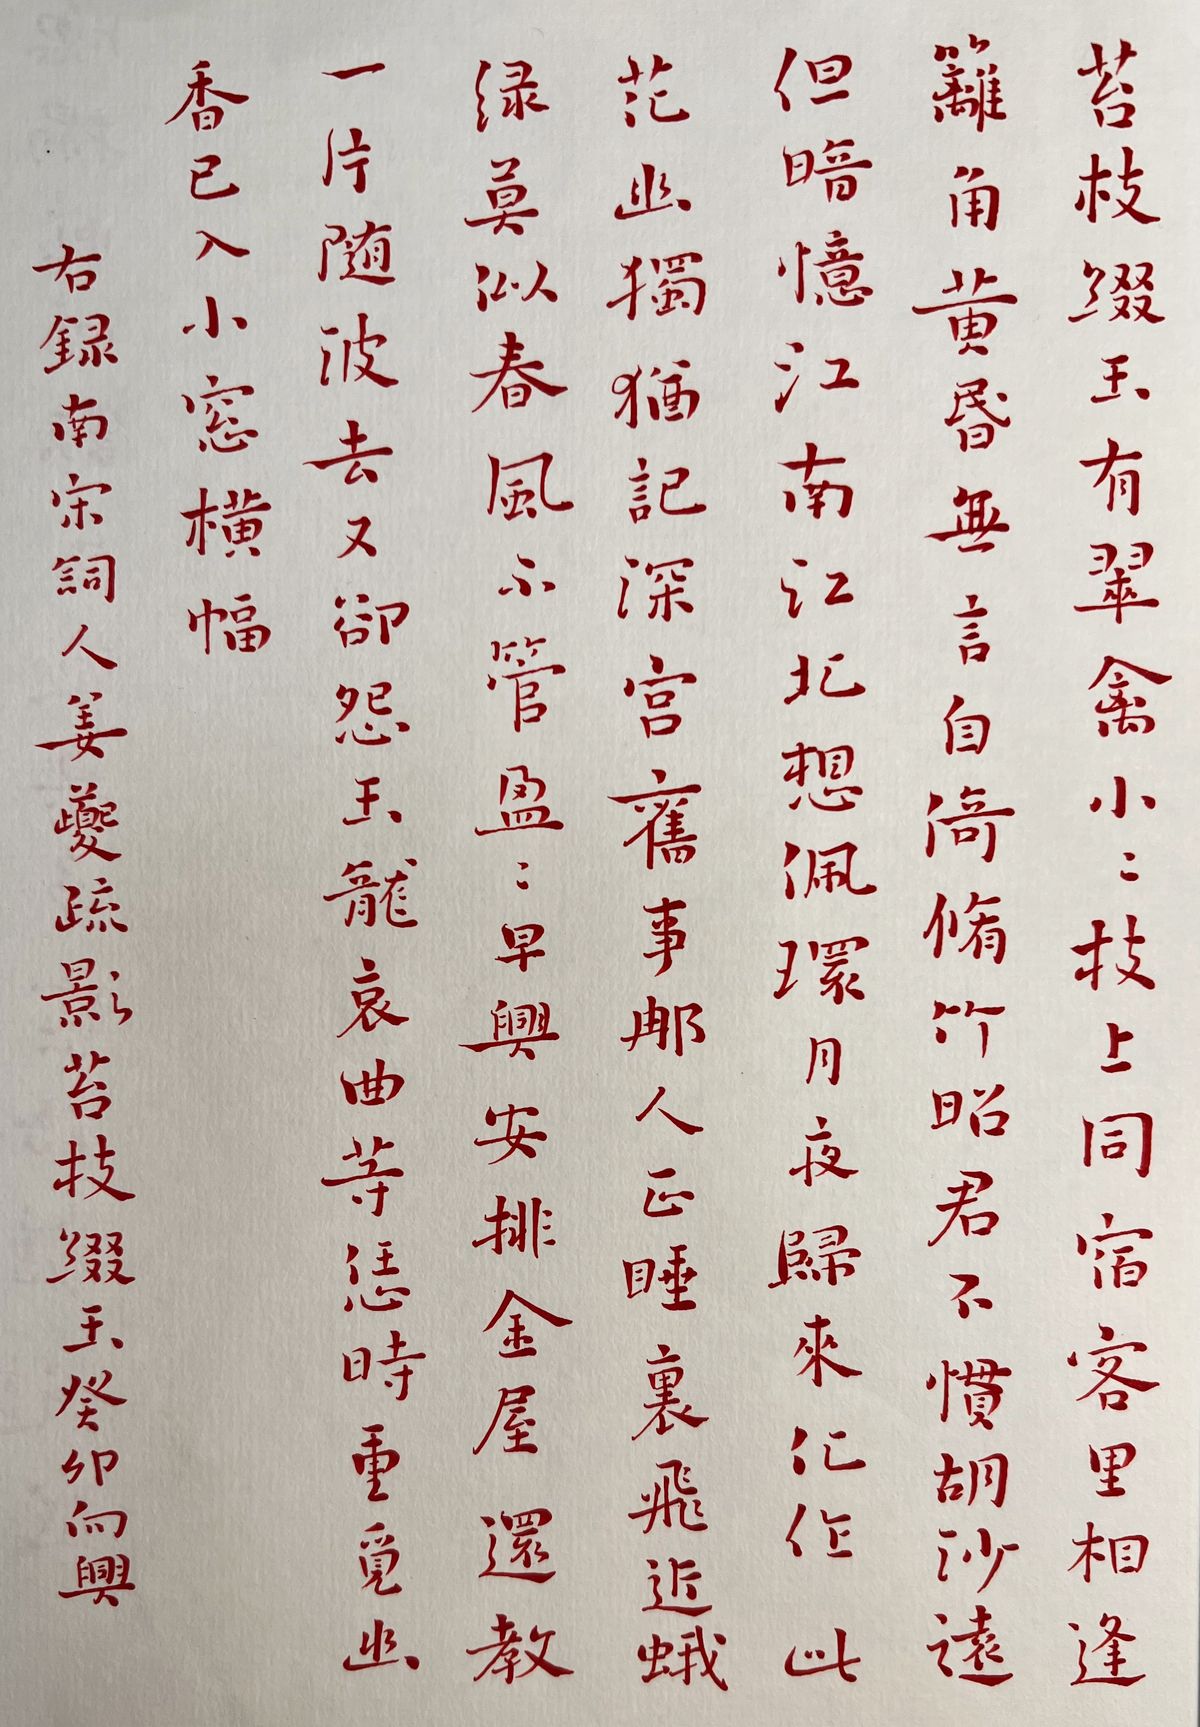 苔枝綴玉有翠禽小〻枝上同宿客里相逢
籬角黄昏無言自倚脩竹昭君不慣胡沙遠
但暗憶江南江北想佩環月夜歸來化作此
花幽獨猶記深宮舊事那人正睡裏飛近蛾
緑莫似春風不管盈〻早與安排金屋還教
一片随波去又卻怨玉龍哀曲等恁時重覓幽
香已入小窓横幅
右録南宋詞人姜夔疏影苔枝綴玉癸卯向興